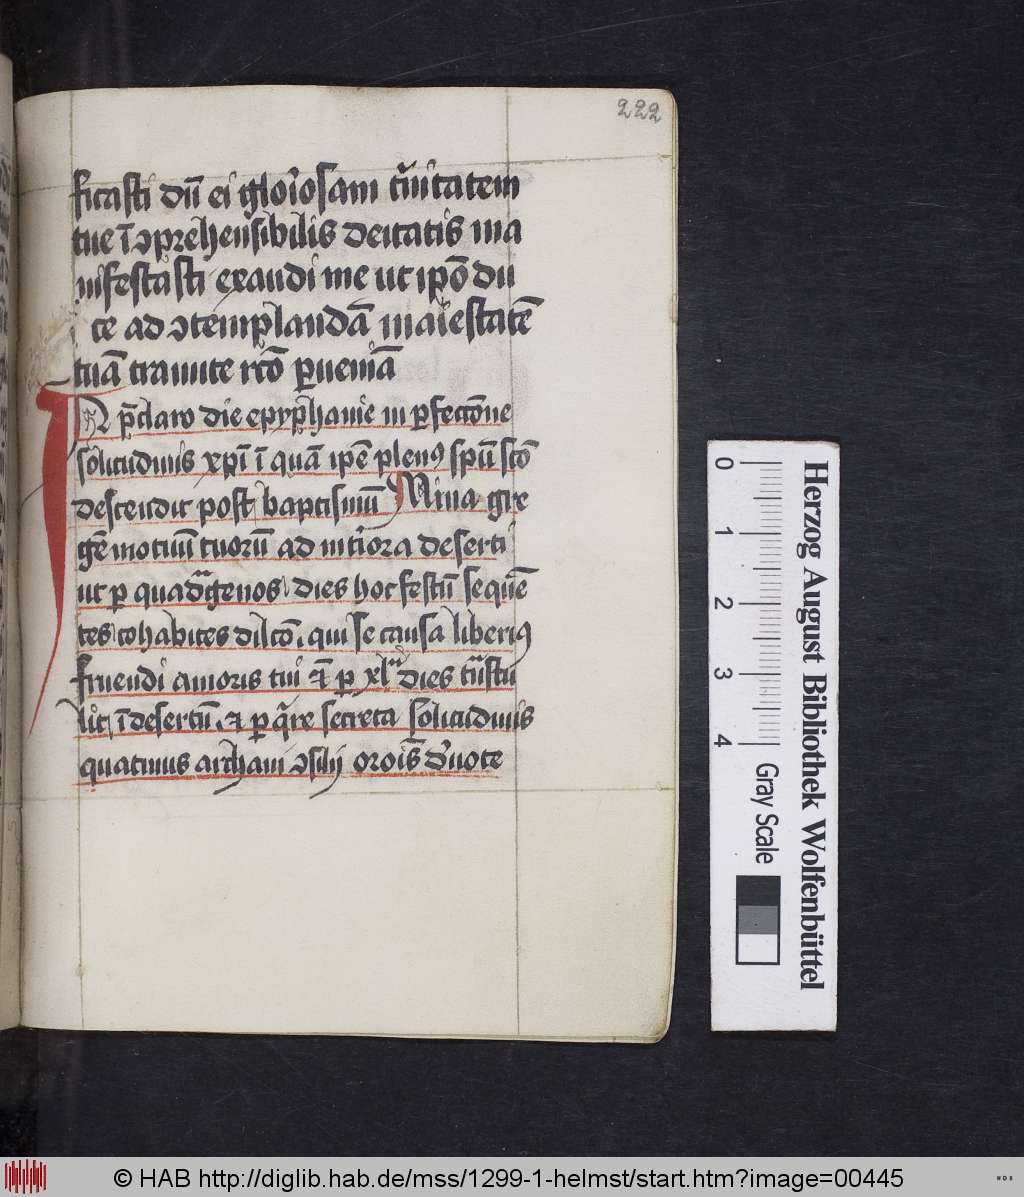 222
ficasti dū ei glo'iosam t'nitatem
tue ī ꝯprehensibilis deitatis ma
nifestasti exaudi me ut ip̄o du
te ad ꝯtemplandā maiestatē
tuā tranute rcō ꝑueniā
In p̄claro die epyphanie in ꝑfectōne
solitudinis xp̄i ī quā ip̄e plenꝰ sp̄u scō
descendit post baptismū Mina gre
gē motiuū tuorū ad int'iora deserti
ut ꝑ quadᵃgenos dies hoc festū sequē
tes cohabites dilcō qui se causa liberiꝰ
fruendi amoris tui ⁊ ꝑ xlᵃ dies tᵃstu
lit ī desertū ⁊ ꝑ q're secreta solitudinis
quatinus archani ꝯsilij orōis d'uote
0 1 2 3 4
Gray Scale
Herzog August Bibliothek Wolfenbüttel
© HAB http://diglib.hab.de/mss/1299-1-helmst/start.htm?image=00445